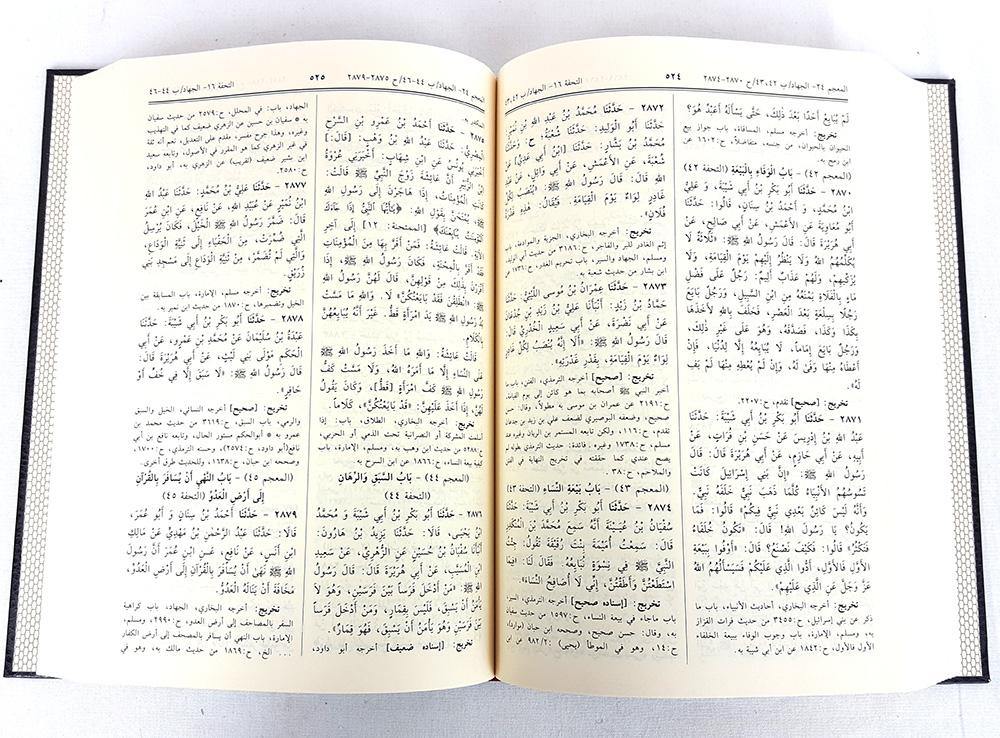 المعجم ٢٤- الجهاد/ب ٤٣،٤٢/ح ٢٨٧٠-٢٨٧٤
٥٢٤
التحفة ١٦- الجهاد/ب ٤٣،٤٢
لَمْ يُبَايِعْ أَحَدًا بَعْدَ ذَلِكَ، حَتَّى يَسْأَلَهُ أَعَبْدٌ هُوَ؟
تخريج: أخرجه مسلم، المساقاة، باب جواز بيع
الحيوان بالحيوان، من جنسه، متفاضلاً، ح:١٦٠٢ عن
ابن رمح به.
(المعجم ٤٢) - بَابُ الْوَفَاءِ بِالْبَيْعَةِ (التحفة ٤٢)
٢٨٧٠ - حَدَّثَنَا أَبُو بَكْرِ بْنُ أَبِي شَيْبَةَ، وَ عَلِيُّ
ابْنُ مُحَمَّدٍ، وَ أَحْمَدُ بْنُ سِنَانٍ، قَالُوا: حَدَّثَنَا
أَبُو مُعَاوِيَةَ عَنِ الْأَعْمَشِ، عَنْ أَبِي صَالِحٍ، عَنْ
أَبِي هُرَيْرَةَ قَالَ: قَالَ رَسُولُ اللهِ ﷺ: «ثَلَاثَةٌ لَا
يُكَلِّمُهُمُ اللهُ وَلَا يَنْظُرُ إِلَيْهِمْ يَوْمَ الْقِيَامَةِ، وَلَا
يُزَكِّيهِمْ، وَلَهُمْ عَذَابٌ أَلِيمٌ: رَجُلٌ عَلَى فَضْلِ
مَاءٍ بِالْفَلَاةِ يَمْنَعُهُ مِنِ ابْنِ السَّبِيلِ، وَرَجُلٌ بَايَعَ
رَجُلًا بِسِلْعَةٍ بَعْدَ الْعَصْرِ، فَحَلَفَ بِاللهِ لَأَخَذَهَا
بِكَذَا وَكَذَا، فَصَدَّقَهُ، وَهُوَ عَلَى غَيْرِ ذَلِكَ،
وَرَجُلٌ بَايَعَ إِمَامًا، لَا يُبَايِعُهُ إِلَّا لِدُنْيَا، فَإِنْ
أَعْطَاهُ مِنْهَا وَفَىٰ لَهُ، وَإِنْ لَمْ يُعْطِهِ مِنْهَا لَمْ يَفِ
لَهُ».
تخريج: [صحيح] تقدم، ح:٢٢٠٧.
٢٨٧١ - حَدَّثَنَا أَبُو بَكْرِ بْنُ أَبِي شَيْبَةَ: حَدَّثَنَا
عَبْدُ اللهِ بْنُ إِدْرِيسَ عَنْ حَسَنِ بْنِ فُرَاتٍ، عَنْ
أَبِيهِ، عَنْ أَبِي حَازِمٍ، عَنْ أَبِي هُرَيْرَةَ قَالَ: قَالَ
رَسُولُ اللهِ ﷺ: «إِنَّ بَنِي إِسْرَائِيلَ كَانَتْ
تَسُوسُهُمُ الْأَنْبِيَاءُ كُلَّمَا ذَهَبَ نَبِيٌّ خَلَفَهُ نَبِيٌّ.
وَأَنَّهُ لَيْسَ كَائِنٌ بَعْدِي نَبِيٌّ فِيكُمْ» قَالُوا: فَمَا
يَكُونُ؟ يَا رَسُولَ اللهِ! قَالَ: «تَكُونُ خُلَفَاءُ
فَتَكْثُرُ» قَالُوا: فَكَيْفَ نَصْنَعُ؟ قَالَ: «أَوْفُوا بِبَيْعَةِ
الْأَوَّلِ فَالْأَوَّلِ، أَدُّوا الَّذِي عَلَيْكُمْ فَسَيَسْأَلُهُمُ اللهُ
عَزَّ وَجَلَّ عَنِ الَّذِي عَلَيْهِمْ».
تخريج: أخرجه البخاري، أحاديث الأنبياء، باب ما
ذكر عن بني إسرائيل، ح:٣٤٥٥ من حديث فرات القزاز
به، ومسلم، الإمارة، باب وجوب الوفاء ببيعة الخلفاء
الأول فالأول، ح:١٨٤٢ عن ابن أبي شيبة به.
٢٨٧٢ - حَدَّثَنَا مُحَمَّدُ بْنُ عَبْدِ اللهِ بْنِ نُمَيْرٍ:
حَدَّثَنَا أَبُو الْوَلِيدِ: حَدَّثَنَا شُعْبَةُ، ح: وَحَدَّثَنَا
مُحَمَّدُ بْنُ بَشَّارٍ: حَدَّثَنَا [ابْنُ أَبِي عَدِيٍّ] عَنْ
شُعْبَةَ، عَنِ الْأَعْمَشِ، عَنْ أَبِي وَائِلٍ، عَنْ
عَبْدِ اللهِ قَالَ: قَالَ رَسُولُ اللهِ ﷺ: «يُنْصَبُ لِكُلِّ
غَادِرٍ لِوَاءٌ يَوْمَ الْقِيَامَةِ. فَيُقَالُ: هٰذِهِ غَدْرَةُ
فُلَانٍ».
تخريج: أخرجه البخاري، الجزية والموادعة، باب
إثم الغادر للبر والفاجر، ح:٣١٨٦ عن أبي الوليد به،
ومسلم، الجهاد والسير، باب تحريم الغدر، ح: عن
ابن بشار من حديث شعبة به.
٢٨٧٣ - حَدَّثَنَا عِمْرَانُ بْنُ مُوسَى اللَّيْثِيُّ:
حَدَّثَنَا حَمَّادُ بْنُ زَيْدٍ: أَنْبَأَنَا عَلِيُّ بْنُ زَيْدِ بْنِ جُدْعَانَ
عَنْ أَبِي نَضْرَةَ، عَنْ أَبِي سَعِيدٍ الْخُدْرِيِّ قَالَ:
قَالَ رَسُولُ اللهِ ﷺ: «أَلَا إِنَّهُ يُنْصَبُ لِكُلِّ غَادِرٍ
لِوَاءٌ يَوْمَ الْقِيَامَةِ، بِقَدْرِ غَدْرَتِهِ».
تخريج: [صحيح] أخرجه الترمذي، الفتن، باب ما
أخبر النبي ﷺ أصحابه بما هو كائن إلى يوم القيامة،
ح:٢١٩١ عن عمران بن موسى به مطولاً، وقال: حسن
صحيح، وضعفه البوصيري لضعف علي بن زيد،
تقدم، ح:١١٦، ولكن تابعه المستمر بن الريان وغيره عند
مسلم، ح:١٧٣٨، وغيره. فائدة: حديث الترمذي طوله لم
يصح عندي كما حققته في تخريج النهاية في الفتن
والملاحم، ح:٣٨.
(المعجم ٤٣) - بَابُ بَيْعَةِ النِّسَاءِ (التحفة ٤٣)
٢٨٧٤ - حَدَّثَنَا أَبُو بَكْرِ بْنُ أَبِي شَيْبَةَ: حَدَّثَنَا
سُفْيَانُ بْنُ عُيَيْنَةَ أَنَّهُ سَمِعَ مُحَمَّدَ بْنَ الْمُنْكَدِرِ
قَالَ: سَمِعْتُ أُمَيْمَةَ بِنْتَ رُقَيْقَةَ تَقُولُ: جِئْتُ
النَّبِيَّ ﷺ فِي نِسْوَةٍ نُبَايِعُهُ. فَقَالَ لَنَا: «فِيمَا
اسْتَطَعْتُنَّ وَأَطَقْتُنَّ، إِنِّي لَا أُصَافِحُ النِّسَاءَ».
تخريج: [إسناده صحيح] أخرجه الترمذي، السير،
باب ماجاء في بيعة النساء، ح:١٥٩٧ من حديث سفيان
به، وقال: حسن صحيح، وصححه ابن حبان (موارد)،
ح:١٤، وهو في الموطأ (يحيى) :٩٨٢/٢ عن ابن
المعجم ٢٤- الجهاد/ب ٤٤-٤٦/ح ٢٨٧٥-٢٨٧٩
٥٢٥
التحفة ١٦- الجهاد/ب ٤٤-٤٦
المنكدر به.
٢٨٧٥ - حَدَّثَنَا أَحْمَدُ بْنُ عَمْرِو بْنِ السَّرْحِ
الْمِصْرِيُّ: حَدَّثَنَا عَبْدُ اللهِ بْنُ وَهْبٍ: [قَالَ:]
أَخْبَرَنِي يُونُسُ عَنِ ابْنِ شِهَابٍ: أَخْبَرَنِي عُرْوَةُ
ابْنُ الزُّبَيْرِ أَنَّ عَائِشَةَ زَوْجَ النَّبِيِّ ﷺ قَالَتْ:
كَانَتِ الْمُؤْمِنَاتُ، إِذَا هَاجَرْنَ إِلَى رَسُولِ اللهِ
ﷺ، يُمْتَحَنَّ بِقَوْلِ اللهِ: ﴿يَا أَيُّهَا النَّبِيُّ إِذَا جَاءَكَ
الْمُؤْمِنَاتُ يُبَايِعْنَكَ﴾ [الممتحنة: ١٢] إِلَى آخِرِ
الْآيَةِ. قَالَتْ عَائِشَةُ: فَمَنْ أَقَرَّ بِهَا مِنَ الْمُؤْمِنَاتِ
فَقَدْ أَقَرَّ بِالْمِحْنَةِ، فَكَانَ رَسُولُ اللهِ ﷺ، إِذَا
أَقْرَرْنَ بِذَلِكَ مِنْ قَوْلِهِنَّ، قَالَ لَهُنَّ رَسُولُ اللهِ
ﷺ: «انْطَلِقْنَ فَقَدْ بَايَعْتُكُنَّ» لَا. وَاللهِ مَا مَسَّتْ
يَدُ رَسُولِ اللهِ ﷺ يَدَ امْرَأَةٍ قَطُّ. غَيْرَ أَنَّهُ يُبَايِعُهُنَّ
بِالْكَلَامِ.
قَالَتْ عَائِشَةُ: وَاللهِ مَا أَخَذَ رَسُولُ اللهِ ﷺ
عَلَى النِّسَاءِ إِلَّا مَا أَمَرَهُ اللهُ، وَلَا مَسَّتْ كَفُّ
رَسُولِ اللهِ ﷺ كَفَّ امْرَأَةٍ [قَطُّ]، وَكَانَ يَقُولُ
لَهُنَّ، إِذَا أَخَذَ عَلَيْهِنَّ: «قَدْ بَايَعْتُكُنَّ»، كَلَامًا.
تخريج: أخرجه البخاري، الطلاق، باب: إذا
أسلمت المشركة أو النصرانية تحت الذمي أو الحربي،
ح:٥٢٨٨ من حديث ابن وهب به، ومسلم، الإمارة، باب
كيفية بيعة النساء، ح:١٨٦٦ عن ابن السرح به.
(المعجم ٤٤) - بَابُ السَّبَقِ وَالرِّهَانِ
(التحفة ٤٤)
٢٨٧٦ - حَدَّثَنَا أَبُو بَكْرِ بْنُ أَبِي شَيْبَةَ وَ مُحَمَّدُ
ابْنُ يَحْيَى، قَالَا: حَدَّثَنَا يَزِيدُ بْنُ هَارُونَ:
أَنْبَأَنَا سُفْيَانُ بْنُ حُسَيْنٍ عَنِ الزُّهْرِيِّ، عَنْ سَعِيدِ
بْنِ الْمُسَيَّبِ، عَنْ أَبِي هُرَيْرَةَ قَالَ: قَالَ رَسُولُ
اللهِ ﷺ: «مَنْ أَدْخَلَ فَرَسًا بَيْنَ فَرَسَيْنِ، وَهُوَ لَا
يَأْمَنُ أَنْ يَسْبِقَ، فَلَيْسَ بِقِمَارٍ، وَمَنْ أَدْخَلَ فَرَسًا
بَيْنَ فَرَسَيْنِ وَهُوَ يَأْمَنُ أَنْ يَسْبِقَ، فَهُوَ قِمَارٌ».
تخريج: [إسناده ضعيف] أخرجه أبو داود،
الجهاد، باب: في المحلل، ح:٢٥٧٩ من حديث سفيان
به * سفيان بن حسين عن الزهري ضعيف كما في التهذيب
وغيره، وهذا جرح مفسر، مقدم على التعديل، نعم أنه ثقة
في غير الزهري كما هو المقرر في الأصول، وتابعه سعيد
ابن بشير ضعيف (تقريب) عن الزهري به، أبو داود،
ح:٢٥٨٠.
٢٨٧٧ - حَدَّثَنَا عَلِيُّ بْنُ مُحَمَّدٍ: حَدَّثَنَا عَبْدُ اللهِ
ابْنُ نُمَيْرٍ عَنْ عُبَيْدِ اللهِ، عَنْ نَافِعٍ، عَنِ ابْنِ عُمَرَ
قَالَ: ضَمَّرَ رَسُولُ اللهِ ﷺ الْخَيْلَ، فَكَانَ يُرْسِلُ
الَّتِي ضُمِّرَتْ، مِنَ الْحَفْيَاءِ إِلَى ثَنِيَّةِ الْوَدَاعِ،
وَالَّتِي لَمْ تُضَمَّرْ، مِنْ ثَنِيَّةِ الْوَدَاعِ إِلَى مَسْجِدِ بَنِي
زُرَيْقٍ.
تخريج: أخرجه مسلم، الإمارة، باب المسابقة بين
الخيل وتضميرها، ح:١٨٧٠ من حديث ابن نمير به.
٢٨٧٨ - حَدَّثَنَا أَبُو بَكْرِ بْنُ أَبِي شَيْبَةَ: حَدَّثَنَا
عَبْدَةُ بْنُ سُلَيْمَانَ عَنْ مُحَمَّدِ بْنِ عَمْرٍو، عَنْ أَبِي
الْحَكَمِ مَوْلَى بَنِي لَيْثٍ، عَنْ أَبِي هُرَيْرَةَ قَالَ:
قَالَ رَسُولُ اللهِ ﷺ: «لَا سَبَقَ إِلَّا فِي خُفٍّ أَوْ
حَافِرٍ».
تخريج: [صحيح] أخرجه النسائي، الخيل والسبق
والرمي، باب السبق، ح:٣٦١٩ من حديث محمد بن
عمرو به * أبوالحكم مستور الحال، وتابعه نافع بن أبي
نافع(أبو داود، ح:٢٥٧٤)، وحسنه الترمذي، ح:١٧٠٠،
وصححه ابن حبان، ح:١٦٣٨، وللحديث طرق أخرى.
(المعجم ٤٥) - بَابُ النَّهْيِ أَنْ يُسَافَرَ بِالْقُرْآنِ
إِلَى أَرْضِ الْعَدُوِّ (التحفة ٤٥)
٢٨٧٩ - حَدَّثَنَا أَحْمَدُ بْنُ سِنَانٍ وَ أَبُو عُمَرَ،
قَالَا: حَدَّثَنَا عَبْدُ الرَّحْمٰنِ بْنُ مَهْدِيٍّ عَنْ مَالِكِ
ابْنِ أَنَسٍ، عَنْ نَافِعٍ، عَنِ ابْنِ عُمَرَ أَنَّ رَسُولَ
اللهِ ﷺ نَهَىٰ أَنْ يُسَافَرَ بِالْقُرْآنِ إِلَى أَرْضِ الْعَدُوِّ،
مَخَافَةَ أَنْ يَنَالَهُ الْعَدُوُّ.
تخريج: أخرجه البخاري، الجهاد، باب كراهية
السفر بالمصاحف إلى أرض العدو، ح:٢٩٩٠، ومسلم،
الإمارة، باب النهي أن يسافر بالمصحف إلى أرض الكفار
... الخ، ح:١٨٦٩ من حديث مالك به، وهو في